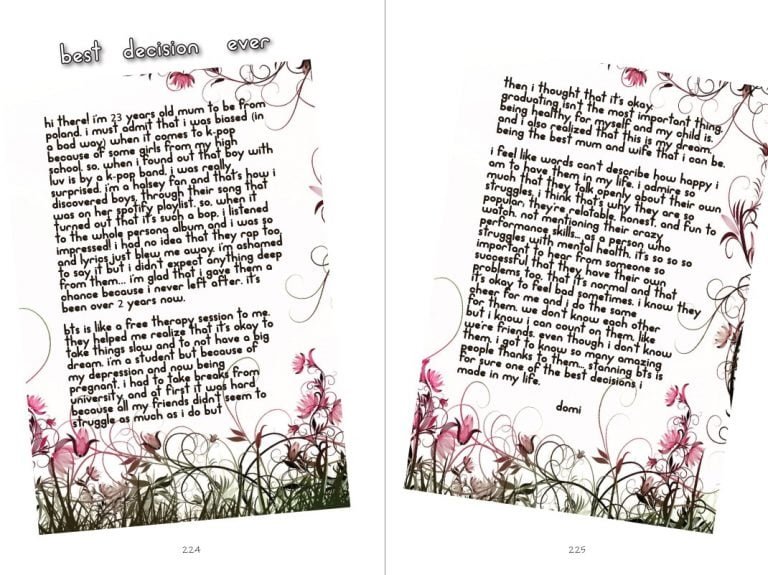 best decision ever
hi there! i'm 23 years old mum to be from
poland. i must admit that i was biased (in
a bad way) when it comes to k-pop
because of some girls from my high
school. so, when i found out that boy with
luv is by a k-pop band, i was really
surprised. i'm a halsey fan and that's how i
discovered boys, through their song that
was on her spotify playlist. so, when it
turned out that it's such a bop, i listened
to the whole persona album and i was so
impressed! i had no idea that they rap too,
and lyrics just blew me away. i'm ashamed
to say it but i didn't expect anything deep
from them... i'm glad that i gave them a
chance because i never left after. it's
been over 2 years now.
bts is like a free therapy session to me.
they helped me realize that it's okay to
take things slow and to not have a big
dream. i'm a student but because of
my depression and now being
pregnant, i had to take breaks from
university, and at first it was hard
because all my friends didn't seem to
struggle as much as i do but
224
then i thought that it's okay.
graduating isn't the most important thing,
being healthy for myself and my child is.
and i also realized that this is my dream,
being the best mum and wife that i can be.
i feel like words can't describe how happy i
am to have them in my life. i admire so
much that they talk openly about their own
struggles, i think that's why they are so
popular. they're relatable, honest, and fun to
watch. not mentioning their crazy
performance skills... as a person who
struggles with mental health, it's so so so
important to hear from someone so
successful that they have their own
problems too, that it's normal and that
it's okay to feel bad sometimes. i know they
cheer for me and i do the same
for them. we don't know each other
but i know i can count on them, like
we're friends, even though i don't know
them. i got to know so many amazing
people thanks to them... stanning bts is
for sure one of the best decisions i
made in my life.
domi
225